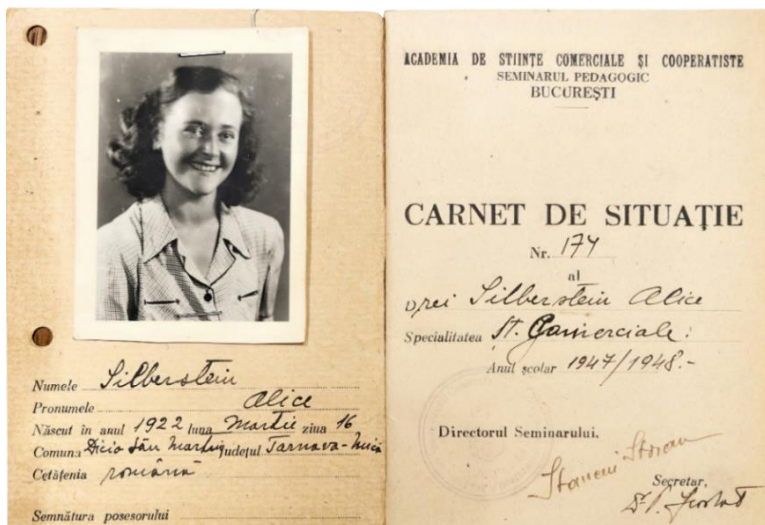 Numele Silberstein
Pronumele Alice
Născut în anul 1922 luna Martie ziua 16
Comuna Dicio Sân Martin județul Tarnava-Mică
Cetățenia română
Semnătura posesorului
ACADEMIA DE STIINTE COMERCIALE ȘI COOPERATISTE
SEMINARUL PEDAGOGIC
BUCUREȘTI
CARNET DE SITUAȚIE
Nr. 174
al
D‚rei Silberstein Alice
Specialitatea Șt. Comerciale.
Anul școlar 1947/1948.-
Directorul Seminarului,
Secretar,